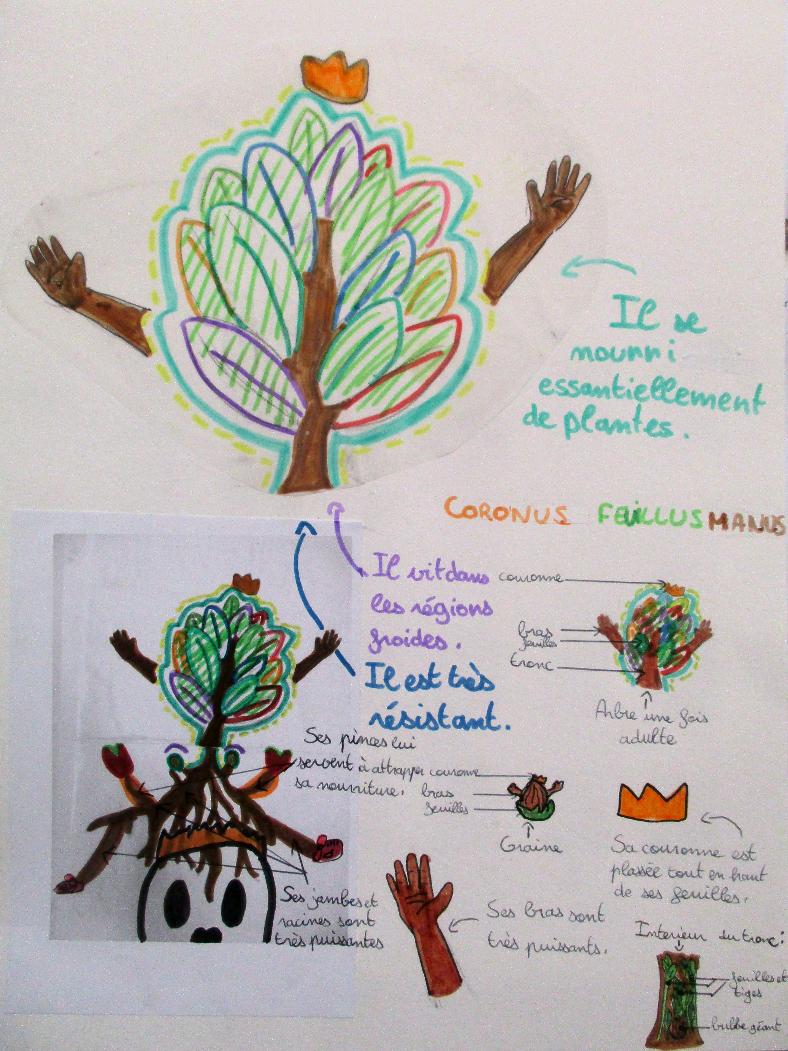 Il se
nourri
essantiellement
de plantes.
CORONUS FEUILLUS MANUS
Il vit dans
les régions
froides.
Il est très
résistant.
couronne
bras
feuilles
tronc
Arbre une fois
adulte
Ses pinces lui
servent à attrapper
sa nourriture.
couronne
bras
feuilles
Graine
Sa couronne est
plassée tout en haut
de ses feuilles.
Ses jambes et
racines sont
très puissantes
Ses bras sont
très puissants.
Interieur du tronc :
feuilles et
tiges
bulbe géant